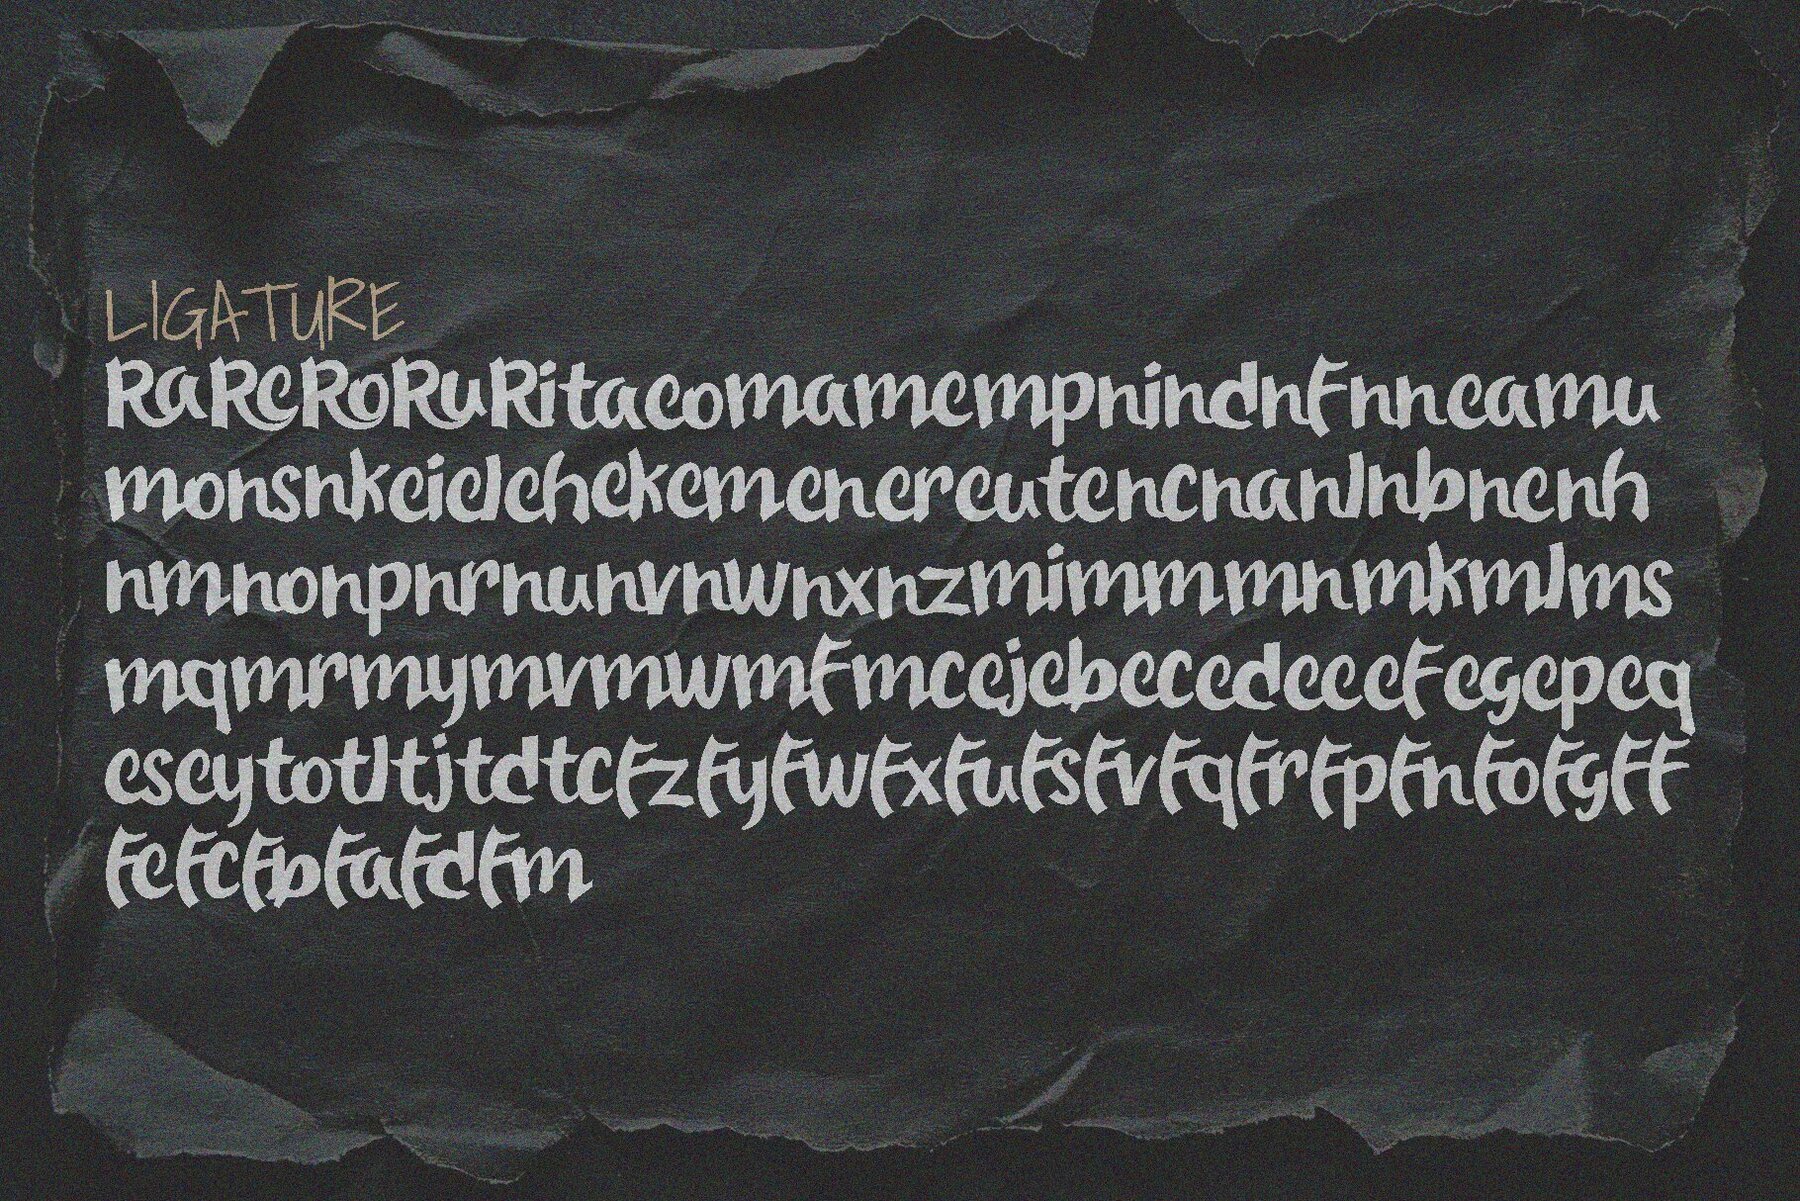 LIGATURE
RaReRoRuRitaeomamempnindnfnneamu
monsnkeielehekemenereutencnanlnbnenh
nmnonpnrnunvnwnxnzmimmmnmkmlms
mqmrmymvmwmfmcejebecedeeefegepeq
eseytotltjtdtcfzfyfwfxfufsfvfqfrfpfnfofgff
fefcfbfafdfm